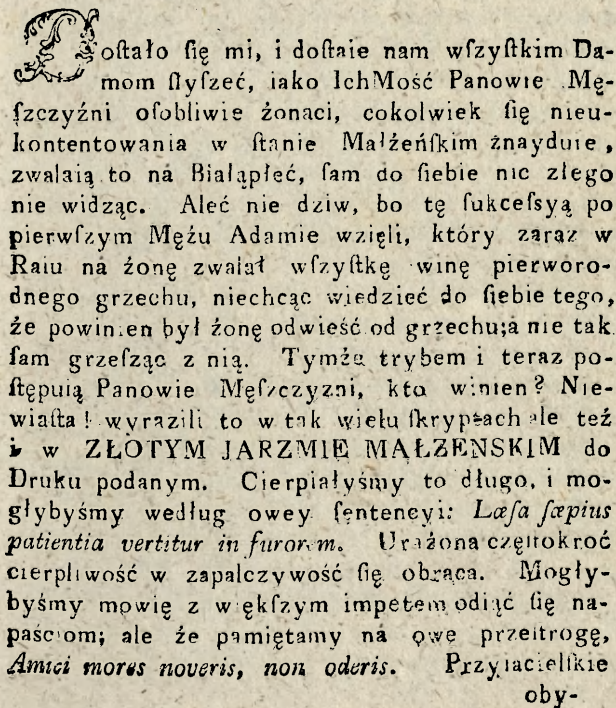 Dostało ſię mi, i doſtaie nam wſzyſtkim Da-
mom ſlyſzeć, iako IchMość Panowie Mę-
ſzczyźni oſobliwie żonaci, cokolwiek ſię nieu-
kontentowania w ſtanie Małżeńſkim znayduie,
zwalaią to ná Białąpłeć, ſam do ſiebie nic złego
nie widząc. Aleć nie dziw, bo tę ſukceſsyą po
pierwſzym Mężu Adamie wzięli, który zaraz w
Raiu ná żonę zwalał wſzyſtkę winę pierworo-
dnego grzechu, niechcąc wiedzieć do ſiebie tego,
że powinien był żonę odwieść od grzechu;á nie tak
ſam grzeſząc z nią. Tymże trybem i teraz po-
ſtępuią Panowie Męſzczyzni, kto winien? Nie-
wiaſta! wyrazili to w tak wielu ſkryptach ale też
i w ZŁOTYM JARZMIE MAŁZENSKIM do
Druku podanym. Cierpiałyśmy to długo, i mo-
głybyśmy według owey ſentencyi: Læſa ſæpius
patientia vertitur in furorem. Urażona częſtokroć
cierpliwość w zapalczywość ſię obraca. Mogły-
byśmy mowię z więkſzym impetem odiąć ſię na-
paściom; ale że pamiętamy ná owę przeſtrogę,
Amici mores noveris, non oderis. Przyiacielſkie
oby-